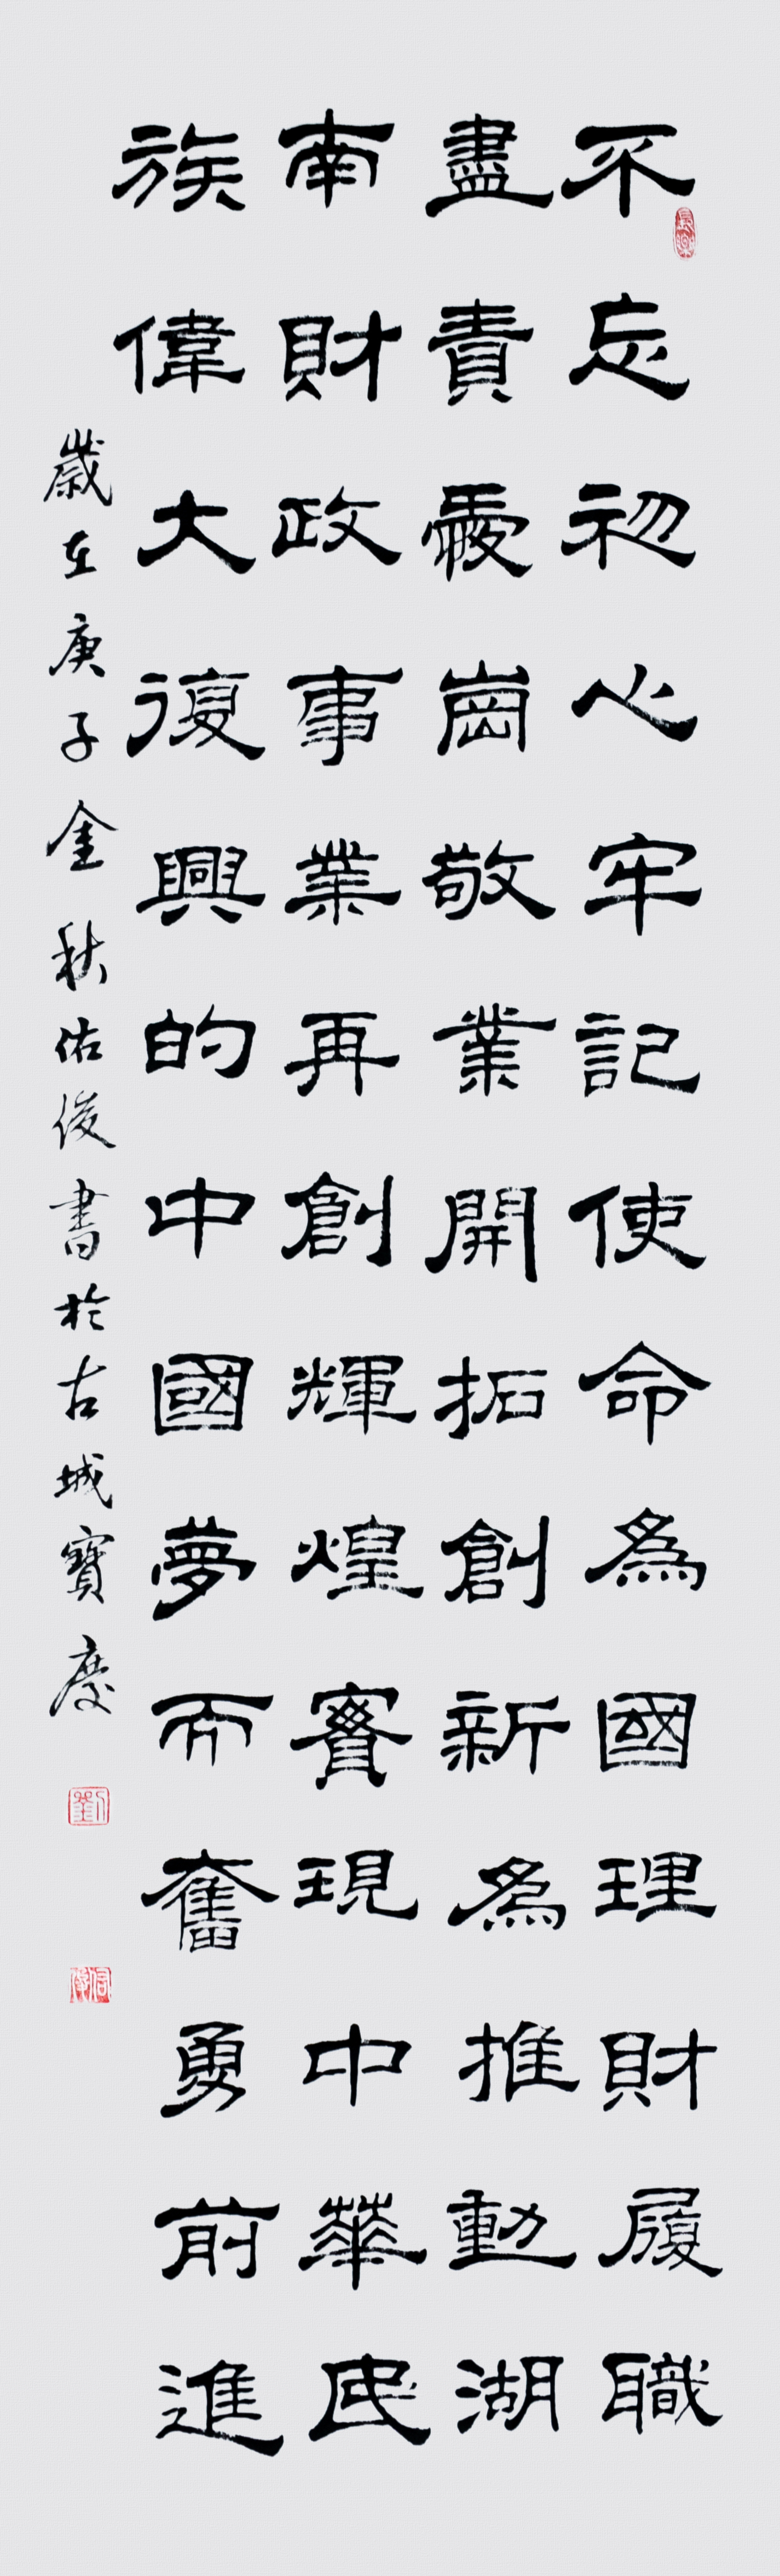 不忘初心牢記使命為國理財履職
盡責愛崗敬業開拓創新為推動湖
南財政事業再創輝煌實現中華民
族偉大復興的中國夢而奮勇前進
歲在庚子金秋佑俊書於古城寶慶